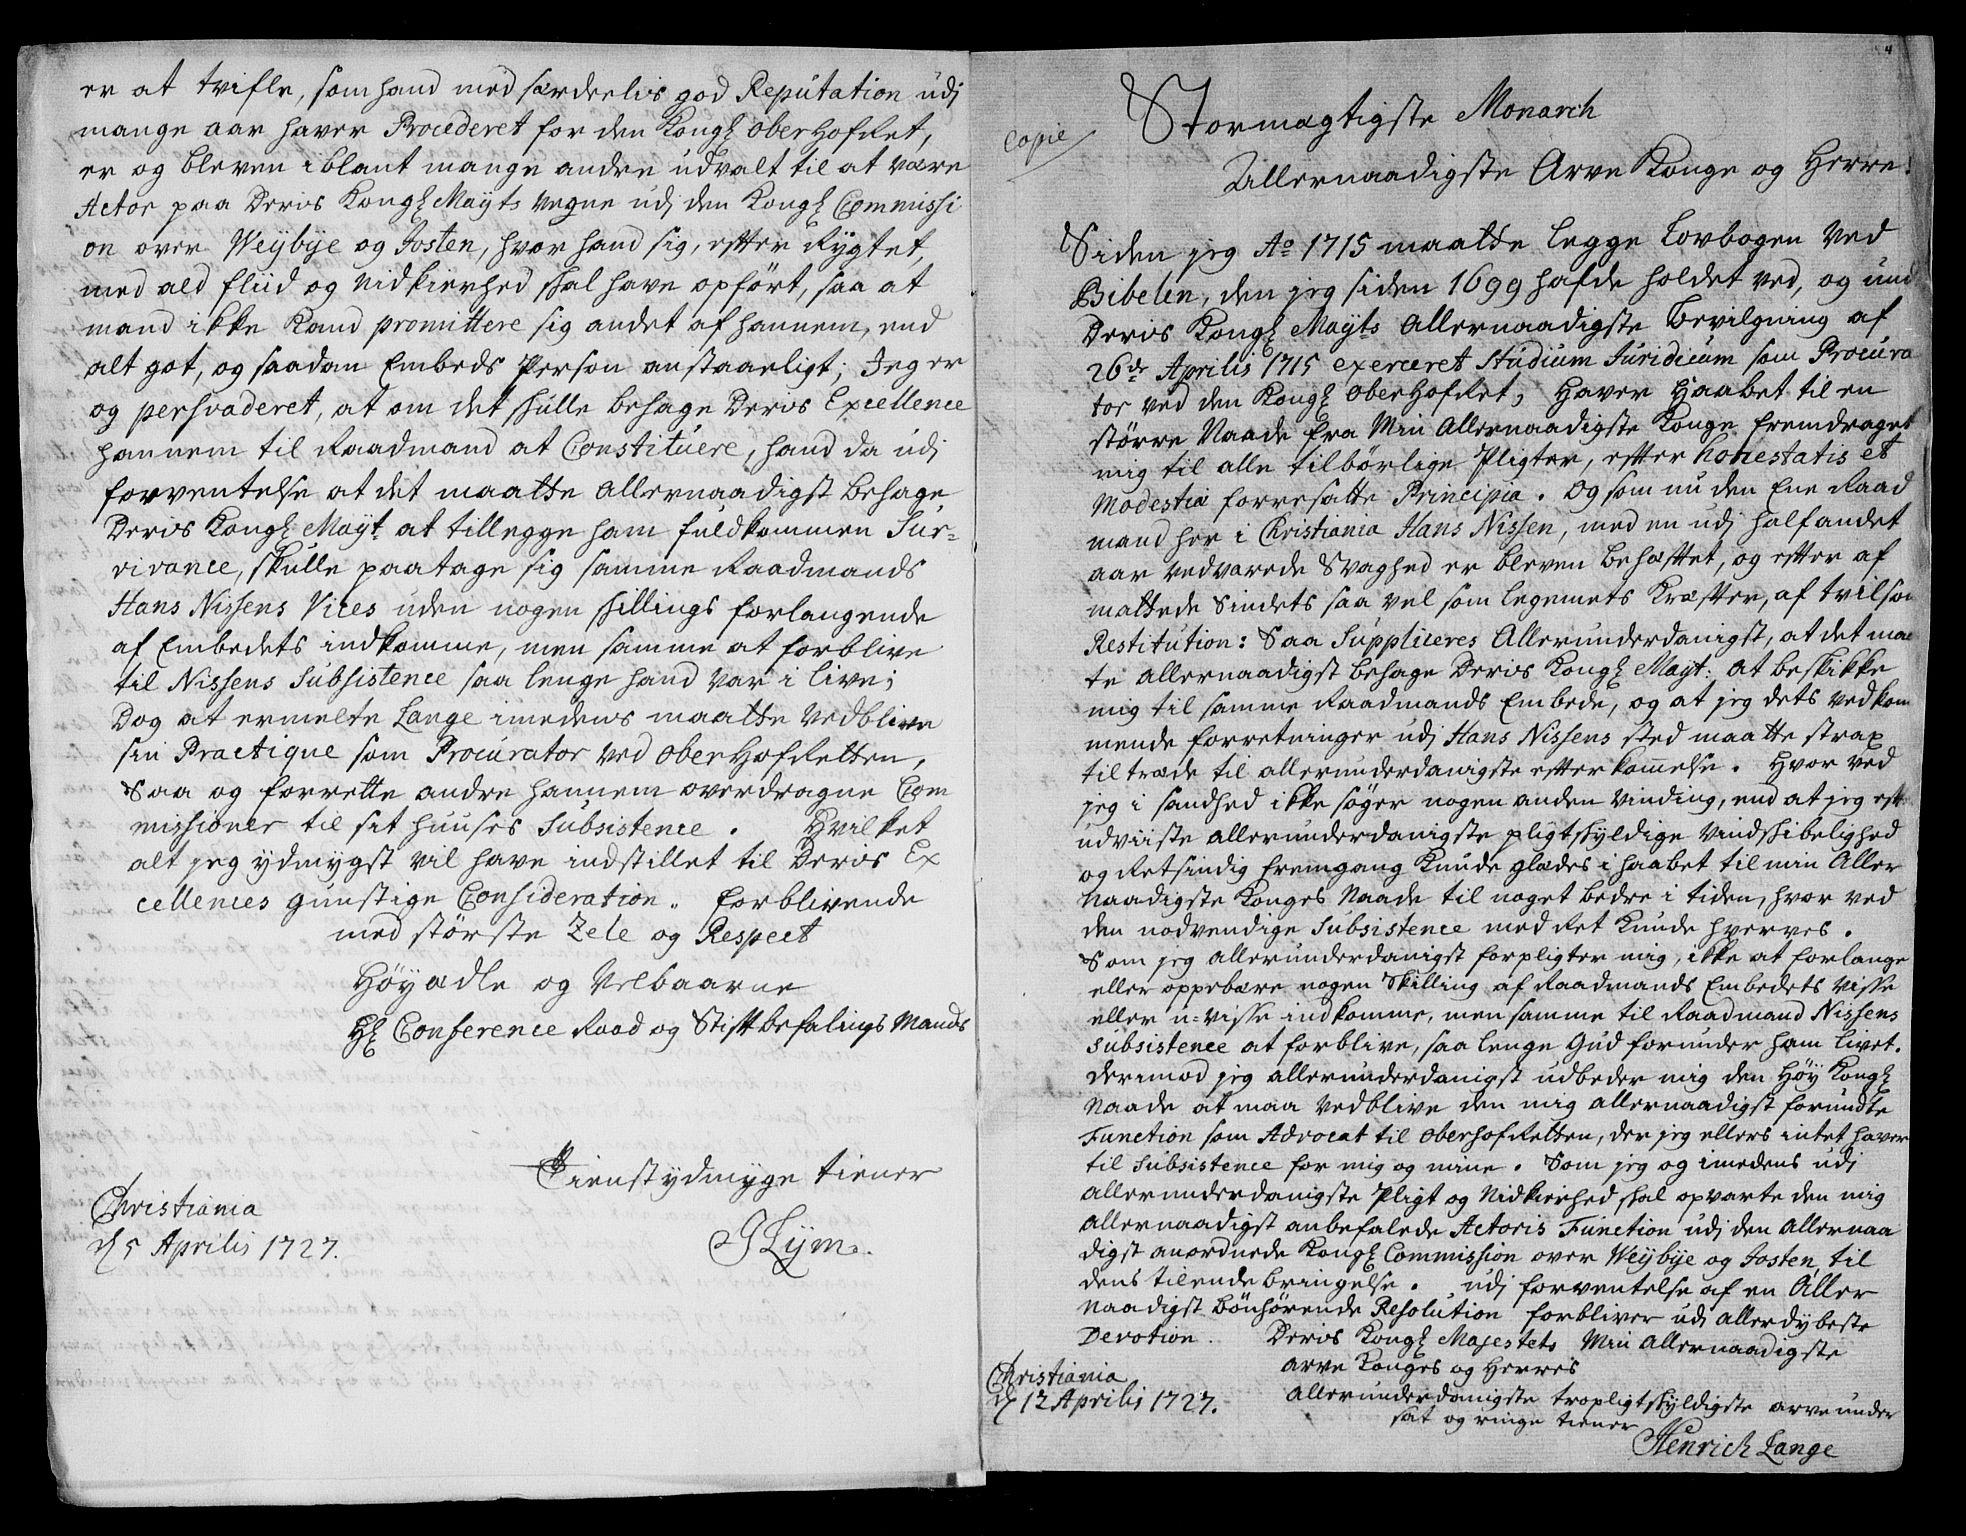 er at tvifle, som hand med særdeelis god Reputation udj
mange aar haver Procederet for den Kongl OberHofRet,
er og bleven iblant mange andre udvalt til at være
Actor paa Deris Kongl Mayts vegne udj den Kongl Commissi
on over Weÿbÿe og Josten, hvor hand sig, efter Rÿgtet,
med ald fliid og nidkierhed skal have opfört, saa at
mand ikke Kand promittere sig andet af hannem, end
alt got, og saadan Embeds Person anstaaeligt; Jeg er
og persvaderet, at om det skulle behage Deris Excellence
hannem til Raadmand at Constituere, hand da udi
forventelse at det maatte Allernaadigst behage
Deris Kongl Mayt at tillegge ham fuldkommen Sur=
vivance, skulle paatage sig samme Raadmands
Hans Nissens Vices uden nogen skillings forlangende
af Embedets indkomme, men samme at forblive
til Nissens Subsistence saa lenge hand var i live;
Dog at ermelte Lange imedens maatte vedblive
sin Practique som Procurator ved OberHofRetten,
Saa og forrette andre hannem overdragne Com
missioner til sit huuses Subsistence. Hvilket
alt jeg ydmygst vil have indstillet til Deris Ex
cellences gunstige Consideration. Forblivende
med störste Zele og Respect
Höyædle og Velbaarne
Hl Conference Raad og Stiftbefalings Mands
Tienstydmyge tiener
Christiania
d 5 Aprilis 1727.
Copie
Stormægtigste Monarch
Allernaadigste Arve Konge og Herre!
Siden jeg Ao 1715 maatte legge Lovbogen ved
Bibelen, den jeg siden 1699 hafde holdet ved, og und
Deris Kongl Mayts Allernaadigste Bevilgning af
26de Aprilis 1715 exerceret Studium Juridicum som Procura
tor ved den Kongl OberHofRet, Haver Haabet til en
större Naade fra Min Allernaadigste Konge fremdraget
mig til alle tilbörlige Pligter, efter honestatis et
Modestiæ forresatte Principia. Og som nu den Ene Raad
mand her i Christiania Hans Nissen, med en udj halfandet
aar vedvarede Svaghed er bleven behæftet, og efter af
mattede Sindets saa vel som legemets Kræfter, af tvilsom
Restitution: Saa Suppliceres Allerunderdanigst, at det maa
te allernaadigst behage Deris Kongl Mayt. at beskikke
mig til samme Raadmands Embede, og at jeg dets vedkom
mende forretninger udj Hans Nissens sted maatte strax
tiltræde til allerunderdanigste efterkomelse. Hvor ved
jeg i sandhed ikke söger nogen anden vinding, end at jeg eft
udviiste allerunderdanigste pligtskyldige vindskibelighed
og Retsindig fremgang Kunde glædes i haabet til min Aller
Naadigste Konges Naade til noget bedre i tiden, hvor ved
den nødvendige Subsistence med Ret Kunde hverves.
Som jeg allerunderdanigst forpligter mig, ikke at forlange
eller oppebære nogen Skilling af Raadmands Embedets visse
eller u=visse indkomme, men samme til Raadmand Nissens
Subsistence at forblive, saa lenge Gud forunder ham livet.
derimod jeg allerunderdanigst udbeder mig den Höy Kongl
Naade at maa vedblive den mig allernaadigst forundte
Function som Advocat til OberhofRetten, der jeg ellers intet haver
til Subsistence for mig og mine. Som jeg og imedens udj
allerunderdanigste Pligt og Nidkierhed skal opvarte den mig
allernaadigst anbefalede Actoris Function udj den allernaa
digst anordnede Kongl Commission over Weÿbÿe og Josten, til
dens tilendebringelse. udj forventelse af en Aller
Naadigst bönhörende Resolution forbliver udj allerdybeste
Devotion. Deris Kongl Majestets Min Allernaadigste
Arve Konges og Herres
Christiania
d 12 Aprilis 1727.
Allerunderdanigste tropligtskyldigste arve under
sat og ringe tiener
Henrich Lange